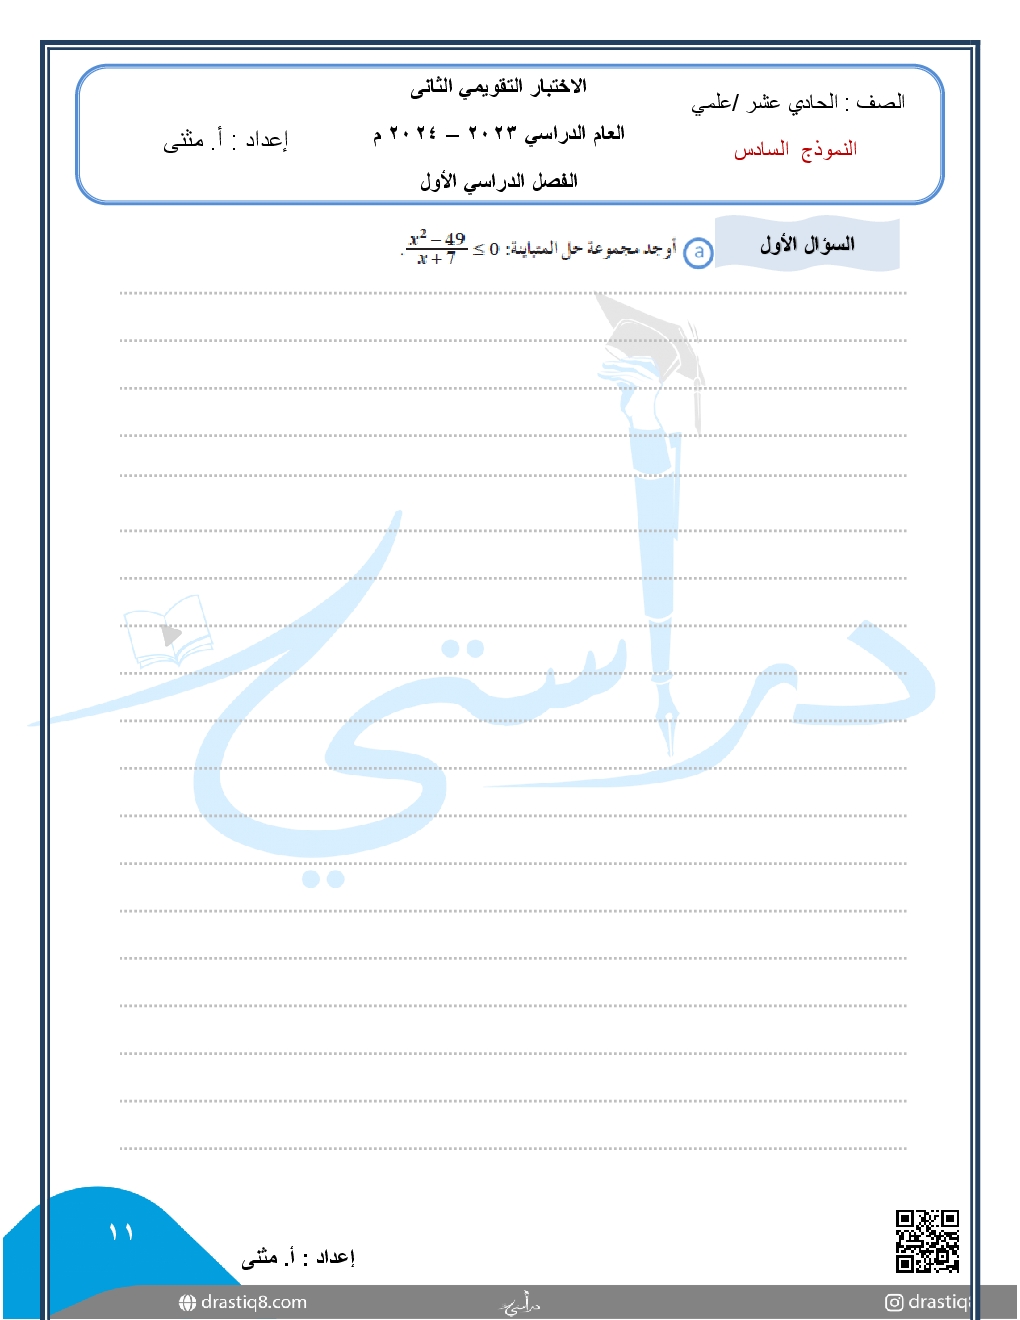 الصف : الحادي عشر /علمي
النموذج السادس
الاختبار التقويمي الثانى
العام الدراسي ٢٠٢٣ – ٢٠٢٤ م
الفصل الدراسي الأول
إعداد : أ. مثنى
السؤال الأول
a أوجد مجموعة حل المتباينة: (x² − 49)/(x + 7) ≤ 0.
دراستي
١١
إعداد : أ. مثنى
drastiq8.com
دراستي
drastiq8